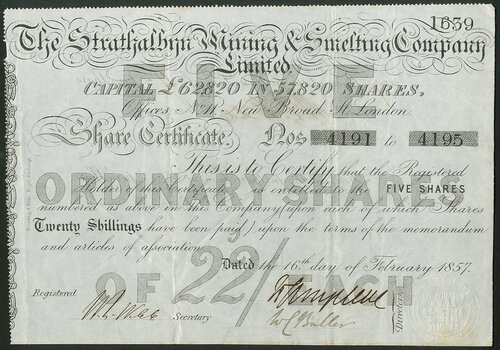 1639
The Strathalbyn Mining & Smelting Company
Limited.
CAPITAL £62820 IN 57,820 SHARES,
Offices No. 11 New Broad St. London.
Share Certificate, Nos 4191 to 4195
This is to Certify that the Registered
Holder of this Certificate is entitled to the FIVE SHARES
numbered as above in this Company (upon each of which Shares
Twenty Shillings have been paid) upon the terms of the memorandum
and articles of association.
Dated the 16th day of February 1857.
Registered
Secretary
Directors
FIVE
ORDINARY SHARES
OF 22/ EACH